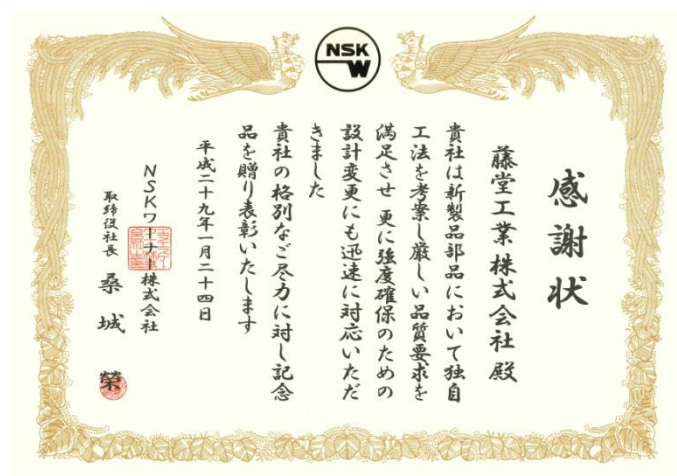 NSK
W
感謝状
藤堂工業株式会社殿
貴社は新製品部品において独自
工法を考案し厳しい品質要求を
満足させ 更に強度確保のための
設計変更にも迅速に対応いただ
きました
貴社の格別なご尽力に対し記念
品を贈り表彰いたします
平成二十九年一月二十四日
NSKワーナー株式会社
取締役社長 桑城 榮